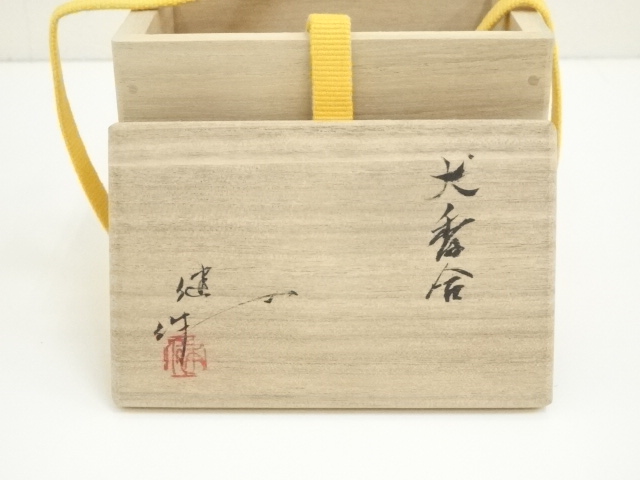 犬香合
健一
作